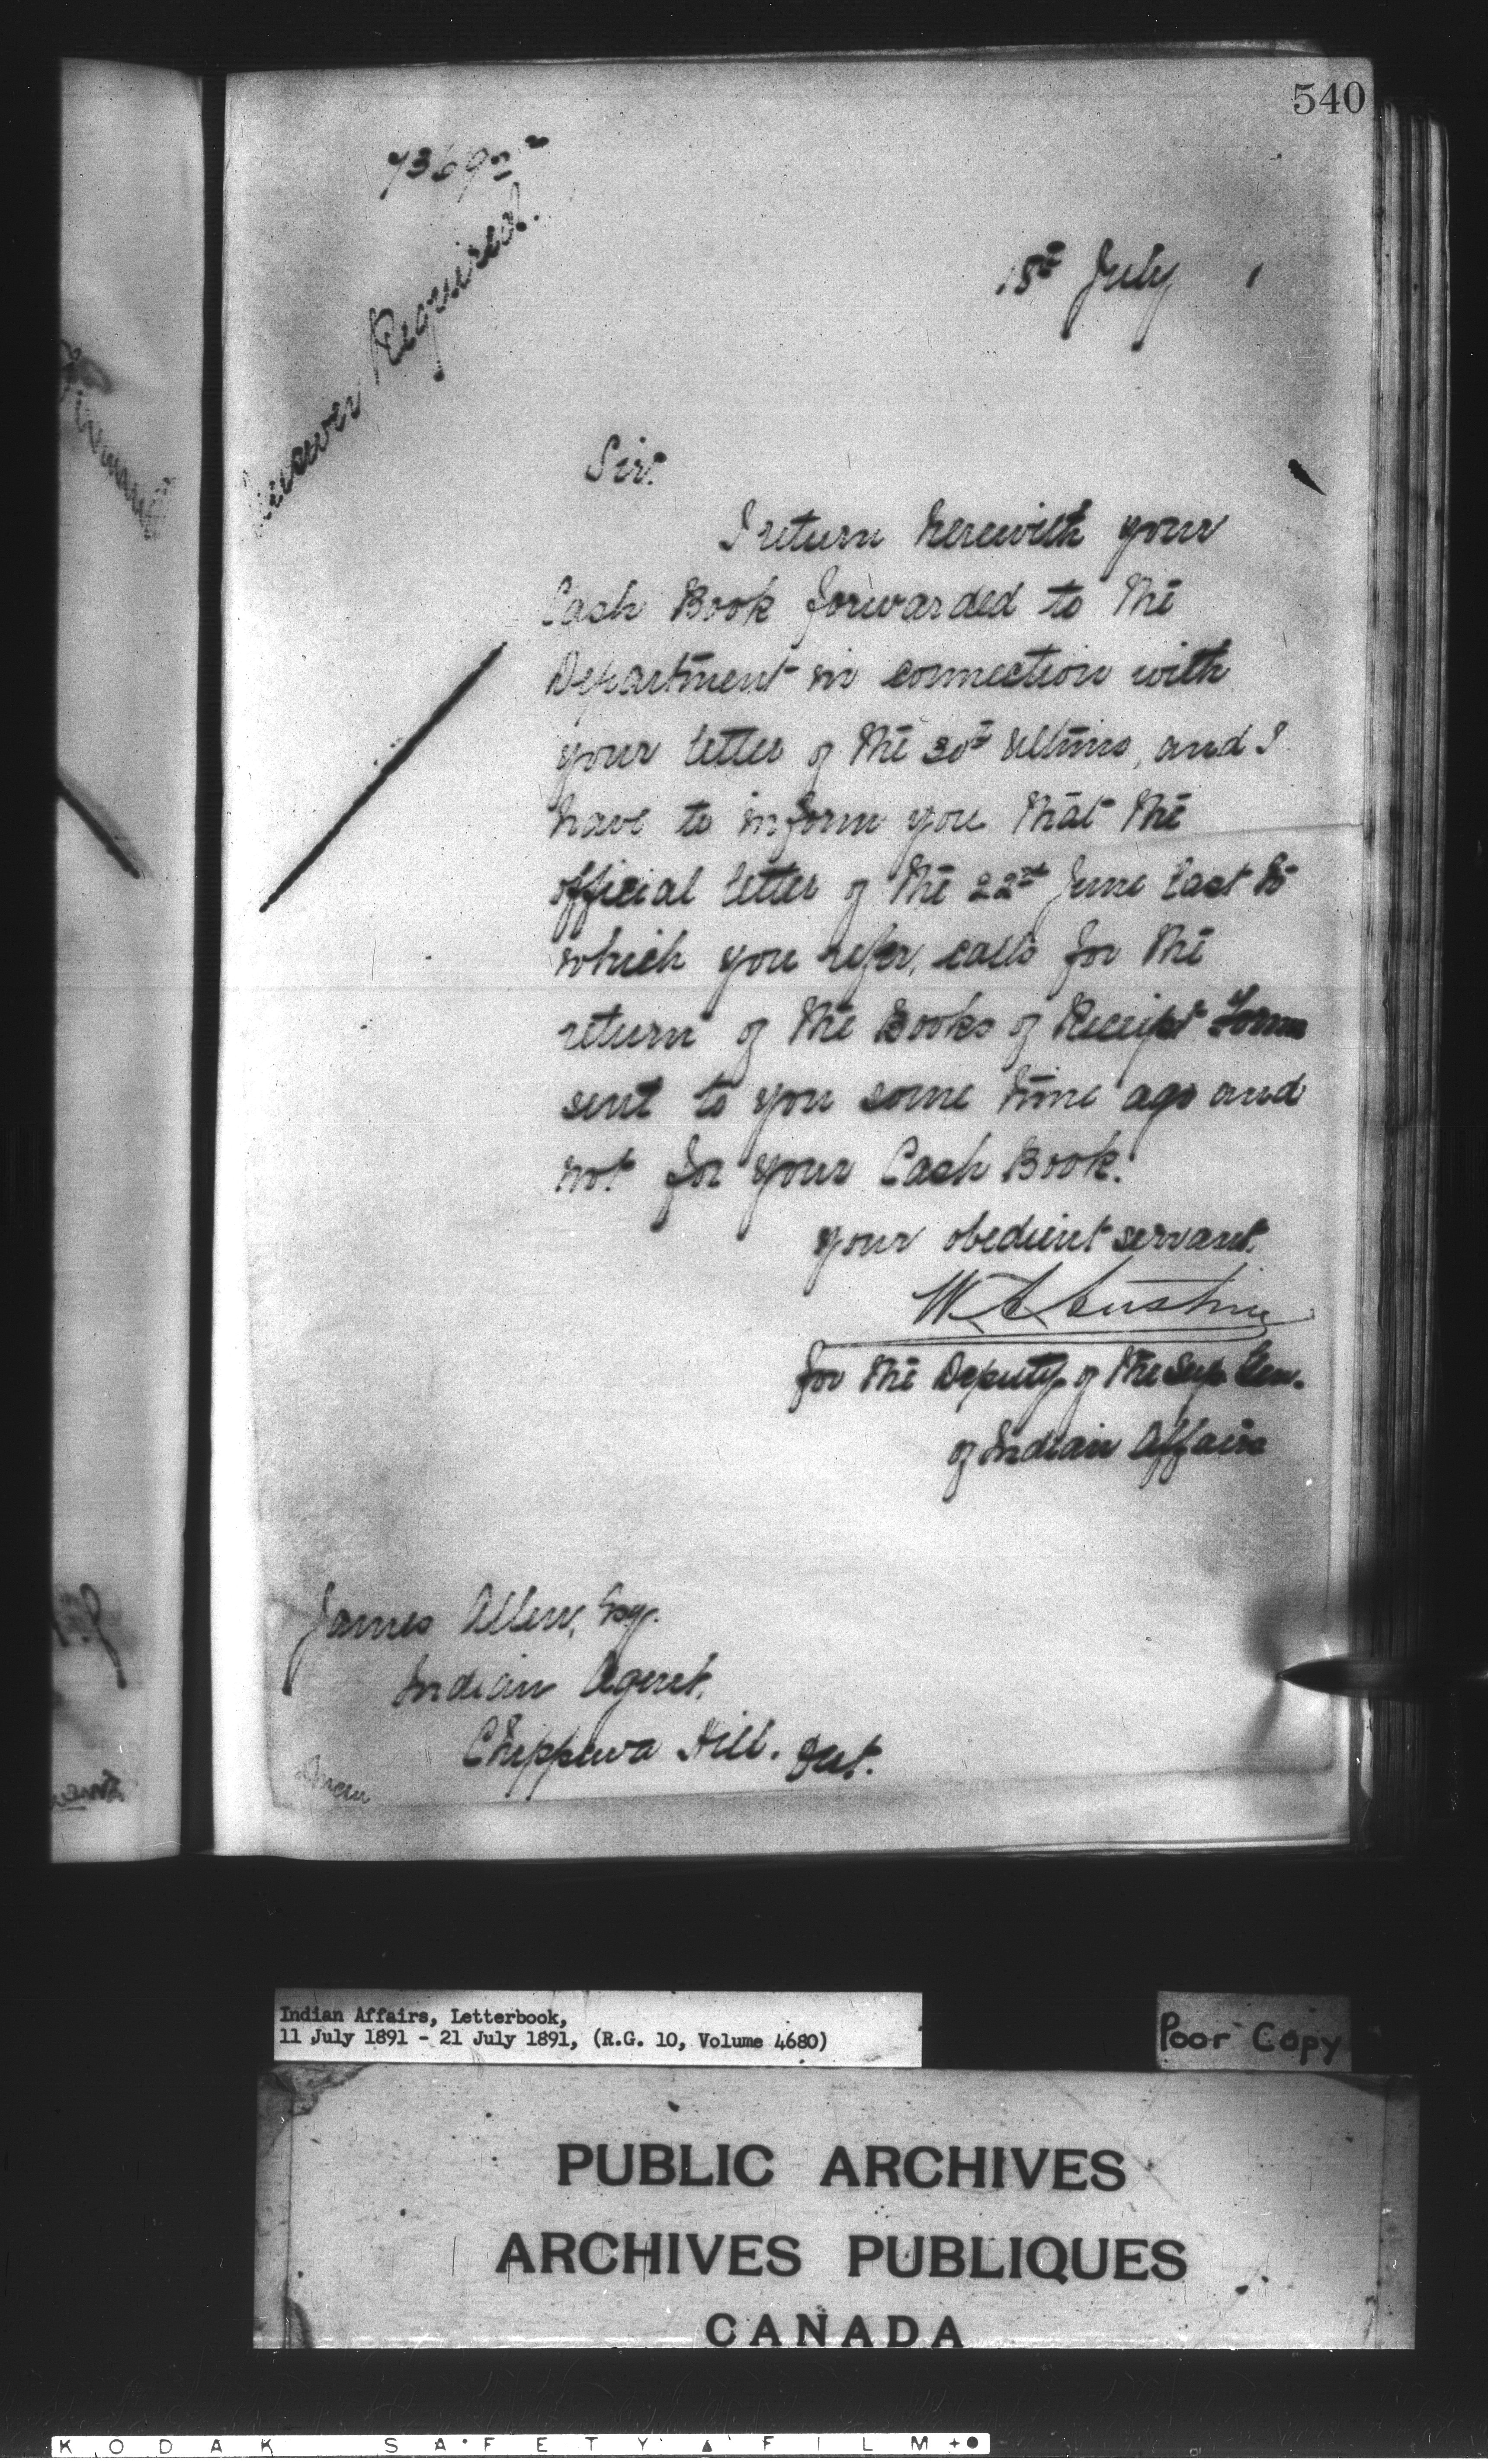 540
Answer Required.
18th July 1
Sir.
I return herewith your
Cash Book forwarded to the
Department in connection with
your letter of the 30th Ultimo, and I
have to inform you that the
official letter of the 22nd June last to
which you refer, calls for the
return of the Books of Receipt Forms
sent to you some time ago and
not for your Cash Book.
your obedient servant.
W A Austin
for the Deputy of the Sup Gen.
of Indian Affairs
James Allen, Esq.
Indian Agent,
Chippewa Hill. Ont.
Indian Affairs, Letterbook,
11 July 1891 - 21 July 1891, (R.G. 10, Volume 4680)
Poor Copy
PUBLIC ARCHIVES
ARCHIVES PUBLIQUES
CANADA
KODAK SAFETY FILM